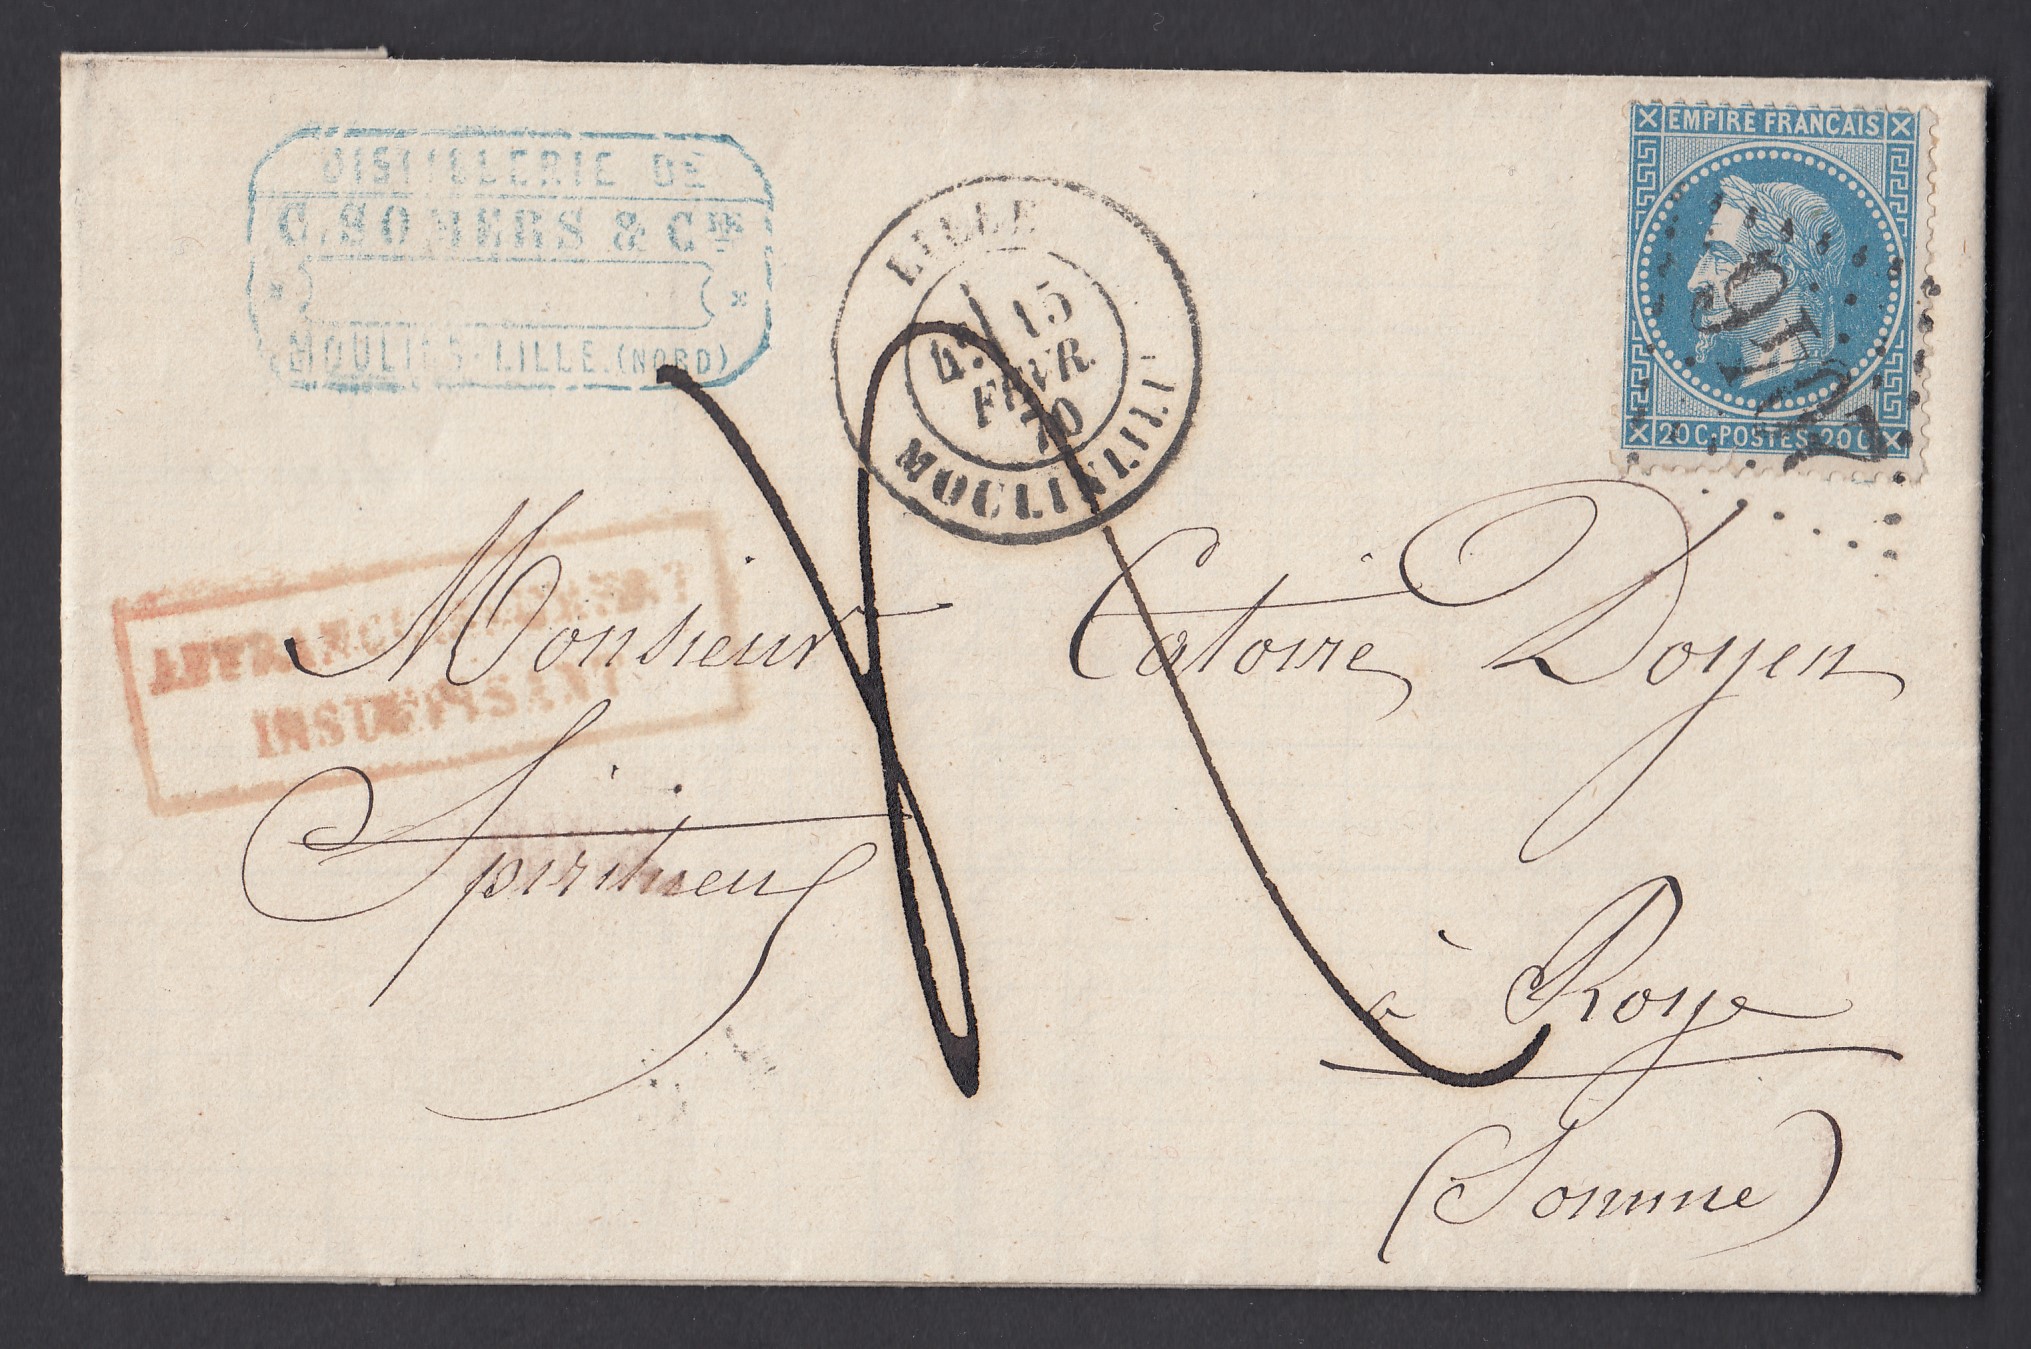 DISTILLERIE DE
C. SOMERS & CIE
MOULINS-LILLE.(NORD)
LILLE
15
FEVR.
70
MOULINS-LILLE
EMPIRE FRANCAIS
20 C. POSTES 20 C
AFFRANCHISSEMENT
INSUFFISANT
Monsieur Catoire Doyen
Spiritueux
à Roye
(Somme)